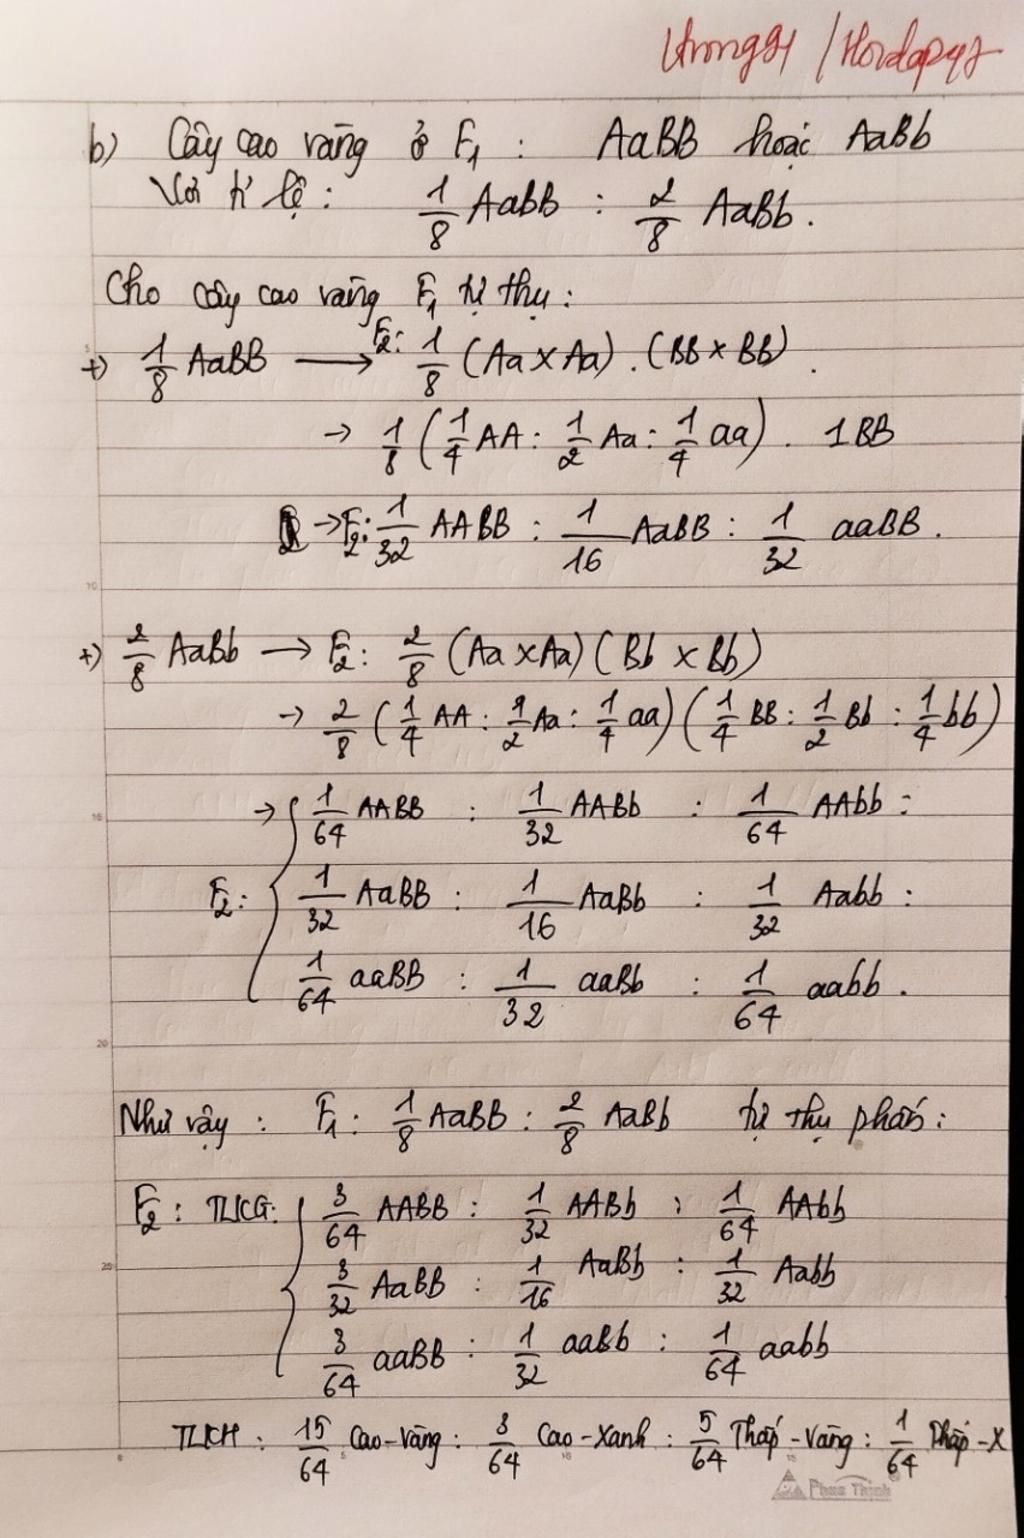 b) Cây cao vàng ở F₁ : AaBB hoặc AaBb
Với tỉ lệ : 1/8 AaBB : 2/8 AaBb.
Cho cây cao vàng F₁ tự thụ :
+) 1/8 AaBB → F₂: 1/8 (Aa x Aa) . (BB x BB) .
→ 1/8 (1/4 AA : 1/2 Aa : 1/4 aa) . 1 BB
→ F₂: 1/32 AABB : 1/16 AaBB : 1/32 aaBB .
+) 2/8 AaBb → F₂: 2/8 (Aa x Aa) (Bb x Bb)
→ 2/8 (1/4 AA : 1/2 Aa : 1/4 aa) (1/4 BB : 1/2 Bb : 1/4 bb)
→ 1/64 AABB : 1/32 AABb : 1/64 AAbb :
F₂: 1/32 AaBB : 1/16 AaBb : 1/32 Aabb :
1/64 aaBB : 1/32 aaBb : 1/64 aabb .
Như vậy : F₁ : 1/8 AaBB : 2/8 AaBb tự thụ phấn :
F₂ : TLKG: 3/64 AABB : 1/32 AABb : 1/64 AAbb
3/32 AaBB : 1/16 AaBb : 1/32 Aabb
3/64 aaBB : 1/32 aaBb : 1/64 aabb
TLKH : 15/64 Cao-Vàng : 3/64 Cao-Xanh : 5/64 Thấp-Vàng : 1/64 Thấp-X
Phúc Thịnh